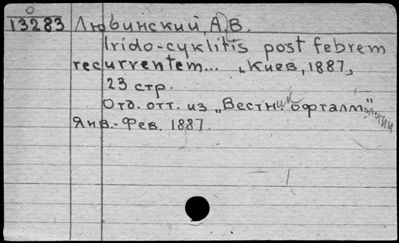 13283 Любинский, А.В.
Irido-cyklitis post febrem
recurrentem... Киев, 1887,
23 стр.
Отд. отт. из „Вестник офталм."
Янв.-Фев. 1887.